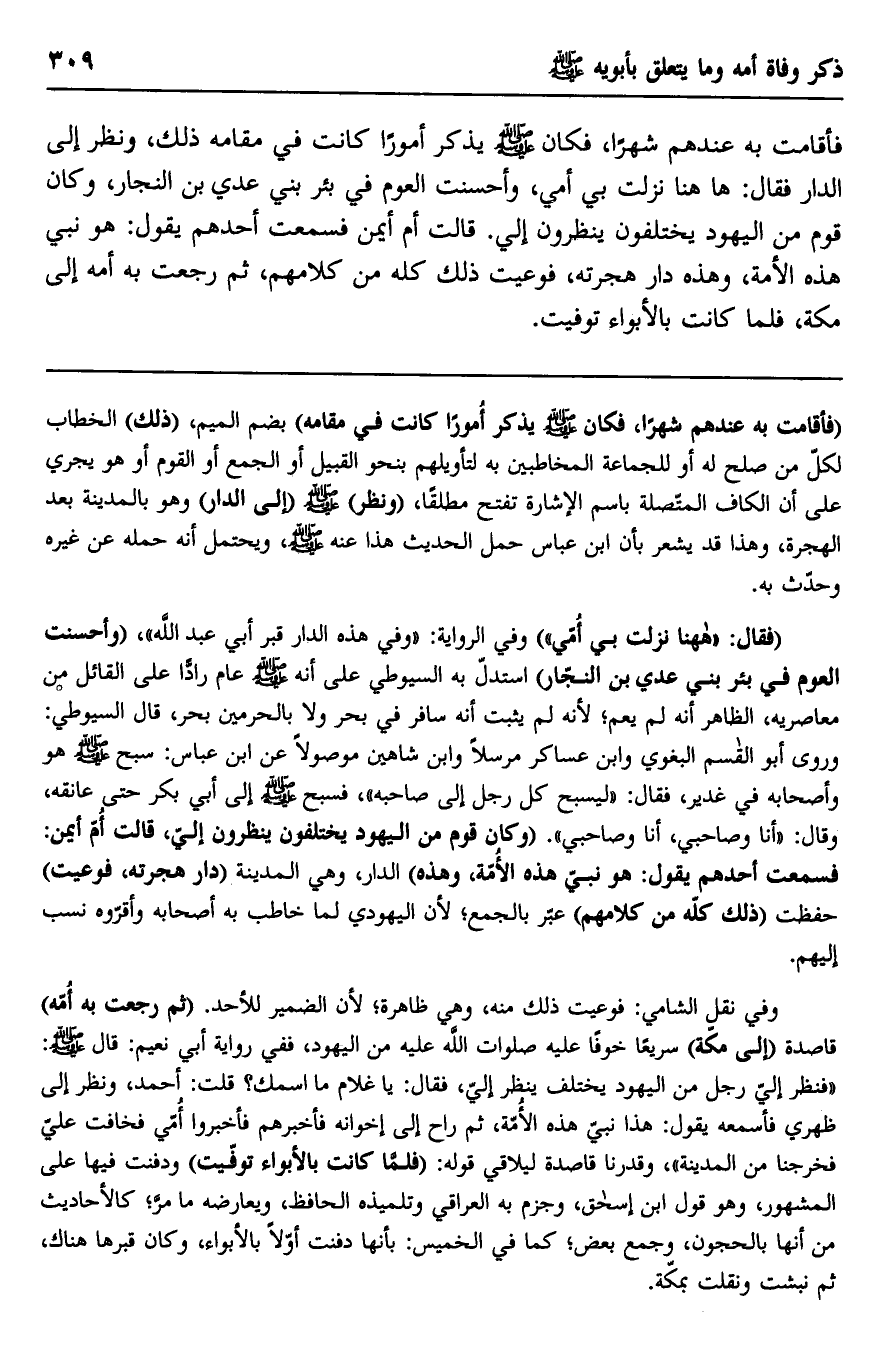 ذكر وفاة أمه وما يتعلق بأبويه ﷺ ٣٠٩
فأقامت به عندهم شهرًا، فكان ﷺ يذكر أمورًا كانت في مقامه ذلك، ونظر إلى
الدار فقال: ها هنا نزلت بي أمي، وأحسنت العوم في بئر بني عدي بن النجار، وكان
قوم من اليهود يختلفون ينظرون إلي. قالت أم أيمن فسمعت أحدهم يقول: هو نبي
هذه الأمة، وهذه دار هجرته، فوعيت ذلك كله من كلامهم، ثم رجعت به أمه إلى
مكة، فلما كانت بالأبواء توفيت.
(فأقامت به عندهم شهرًا، فكان ﷺ يذكر أُمورًا كانت فـي مقامه) بضم الميم، (ذلك) الخطاب
لكلّ من صلح له أو للجماعة المخاطبين به لتأويلهم بنحو القبيل أو الجمع أو القوم أو هو يجري
على أن الكاف المتّصلة باسم الإشارة تفتح مطلقًا، (ونظر) ﷺ (إلـى الدار) وهو بالمدينة بعد
الهجرة، وهذا قد يشعر بأن ابن عباس حمل الحديث هذا عنه ﷺ، ويحتمل أنه حمله عن غيره
وحدّث به.
(فقال: «هٰهنا نزلت بـي أُمّي») وفي الرواية: «وفي هذه الدار قبر أبي عبد اللَّه»، (وأحسنت
العوم فـي بئر بنـي عدي بن النـجّار) استدلّ به السيوطي على أنه ﷺ عام رادًّا على القائل من
معاصريه، الظاهر أنه لم يعم؛ لأنه لم يثبت أنه سافر في بحر ولا بالحرمين بحر، قال السيوطي:
وروى أبو القٰسم البغوي وابن عساكر مرسلاً وابن شاهين موصولاً عن ابن عباس: سبح ﷺ هو
وأصحابه في غدير، فقال: «ليسبح كل رجل إلى صاحبه»، فسبح ﷺ إلى أبي بكر حتى عانقه،
وقال: «أنا وصاحبي، أنا وصاحبي». (وكان قوم من الـيهود يختلفون ينظرون إلـيّ، قالت أُمّ أيمن:
فسمعت أحدهم يقول: هو نبـيّ هذه الأُمّة، وهذه) الدار، وهي المدينة (دار هجرته، فوعيت)
حفظت (ذلك كلّه من كلامهم) عبّر بالجمع؛ لأن اليهودي لما خاطب به أصحابه وأقرّوه نسب
إليهم.
وفي نقل الشامي: فوعيت ذلك منه، وهي ظاهرة؛ لأن الضمير للأحد. (ثم رجعت به أُمّه)
قاصدة (إلـى مكّة) سريعًا خوفًا عليه صلوات اللَّه عليه من اليهود، ففي رواية أبي نعيم: قال ﷺ:
«فنظر إليّ رجل من اليهود يختلف ينظر إليّ، فقال: يا غلام ما اسمك؟ قلت: أحمد، ونظر إلى
ظهري فأسمعه يقول: هذا نبيّ هذه الأُمّة، ثم راح إلى إخوانه فأخبرهم فأخبروا أُمّي فخافت عليّ
فخرجنا من المدينة»، وقدرنا قاصدة ليلاقي قوله: (فلـمَّا كانت بالأبواء توفّيت) ودفنت فيها على
المشهور، وهو قول ابن إسحٰق، وجزم به العراقي وتلميذه الحافظ، ويعارضه ما مرّ؛ كالأحاديث
من أنها بالحجون، وجمع بعض؛ كما في الخميس: بأنها دفنت أوّلاً بالأبواء، وكان قبرها هناك،
ثم نبشت ونقلت بمكّة.